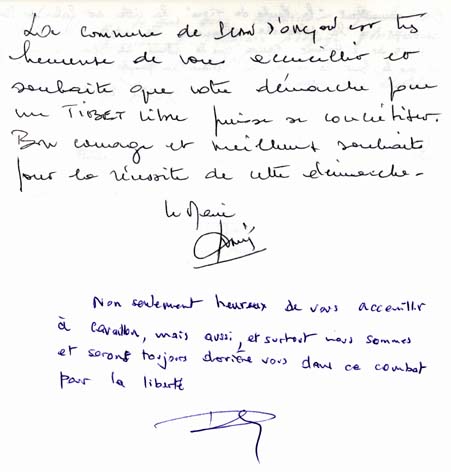 La commune de Plan d'orgon est très
heureuse de vous accueillir et
souhaite que votre démarche pour
un TIBET libre puisse se concrétiser.
Bon courage et meilleurs souhaits
pour la réussite de cette démarche -
le Maire
Non seulement heureux de vous acceuillir
à cavaillon, mais aussi, et surtout nous sommes
et serons toujours derrière vous dans ce combat
pour la liberté